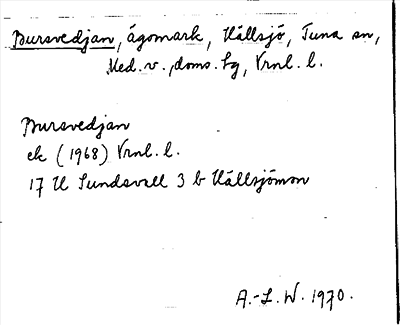 Bursvedjan, ägomark, Hällsjö, Tuna sn,
Med. v. doms. tg, Vrnl. l.
Bursvedjan
ek (1968) Vrnl. l.
17 H Sundsvall 3 b Hällsjömon
A.-L. W. 1970.